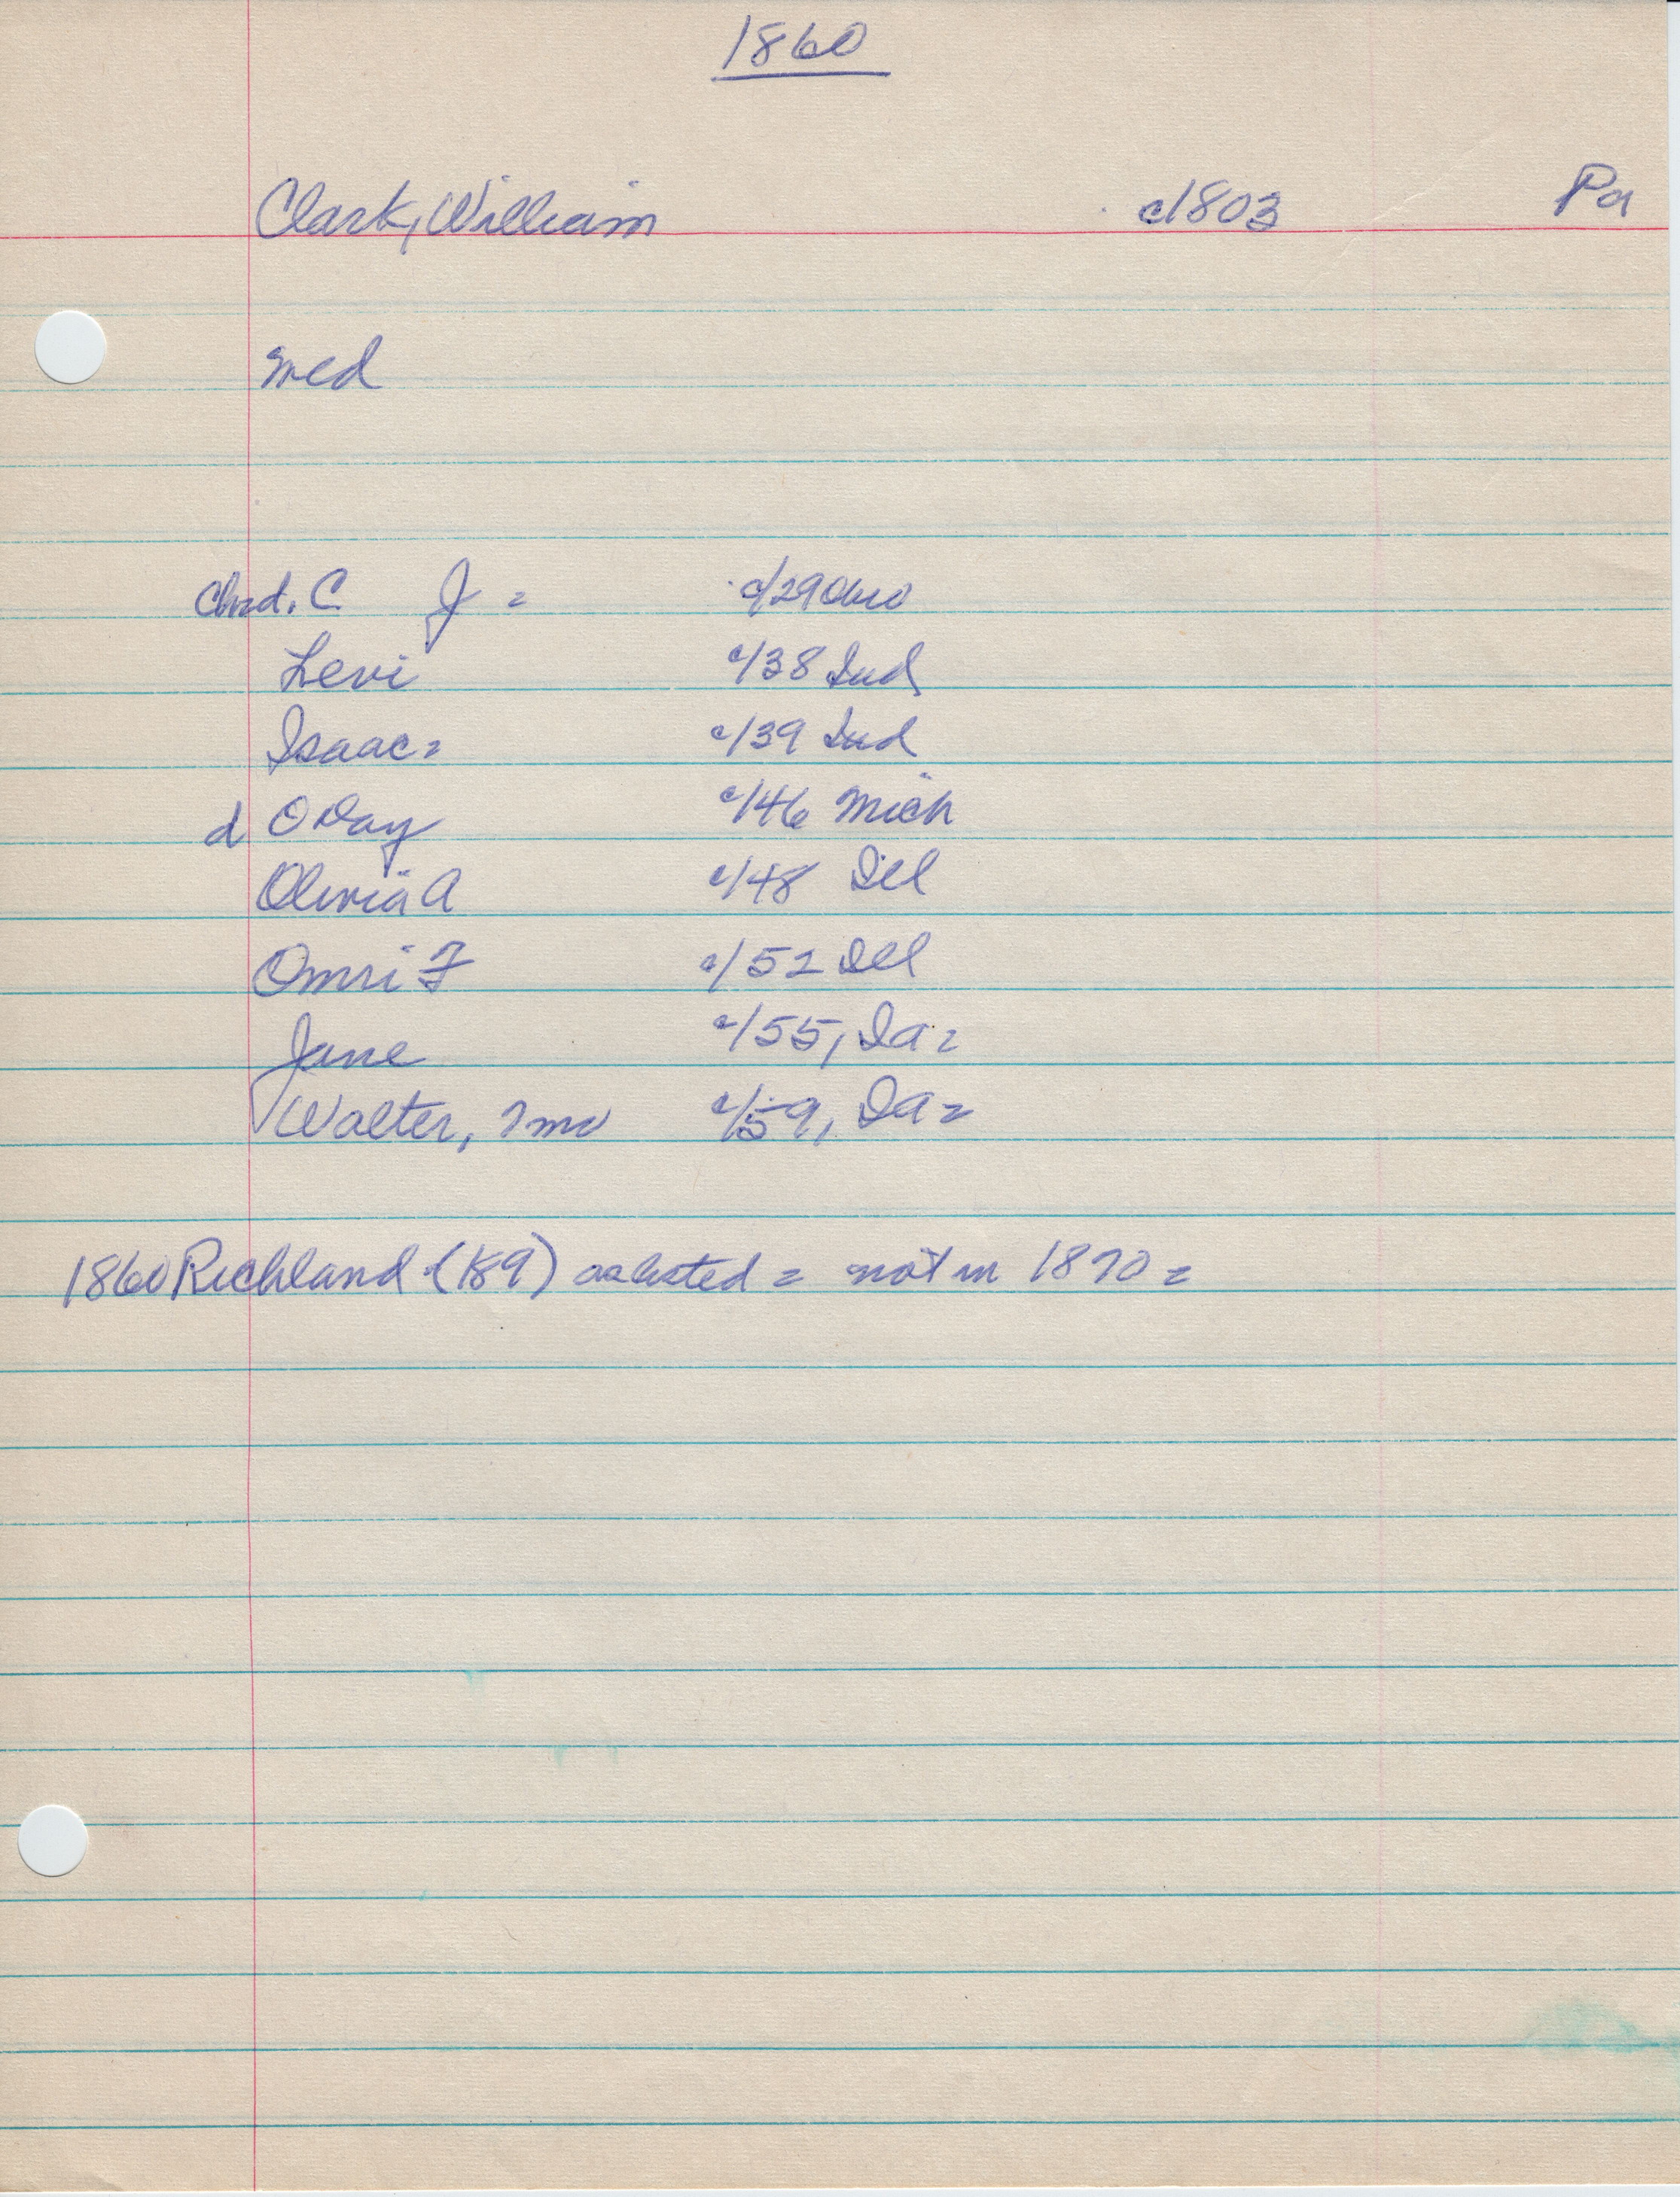 1860
Clark, William c1803 Pa
med
Chrd. C J = c/29 Ohio
Levi c/38 Ind
Isaac = c/39 Ind
d O Day c/46 Mich
Olivia A c/48 Ill
Omri F c/52 Ill
Jane c/55, Ia =
Walter, 7mo c/59, Ia =
1860 Richland (189) as listed = not in 1870 =